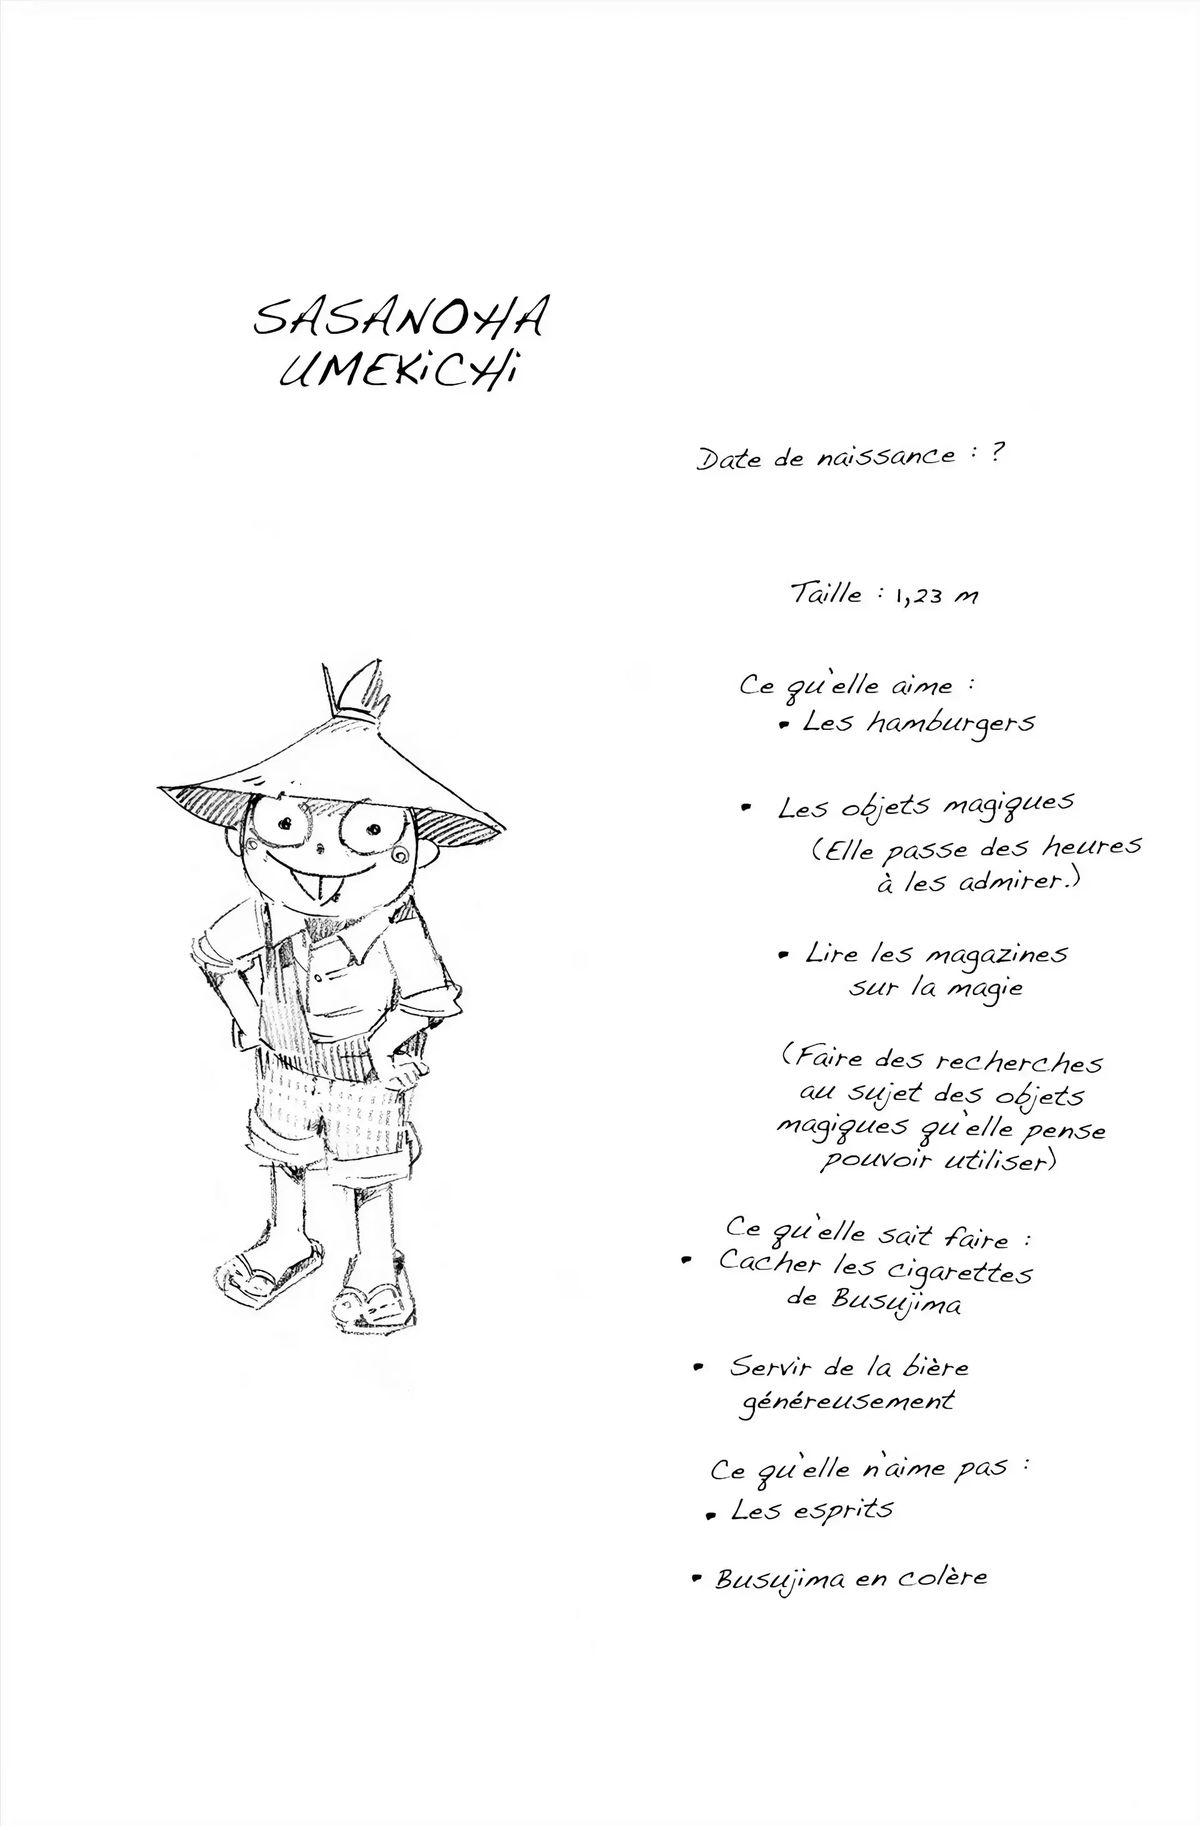 SASANOHA
UMEKiCHi
Date de naissance : ?
Taille : 1,23 m
Ce qu'elle aime :
• Les hamburgers
• Les objets magiques
(Elle passe des heures
à les admirer.)
• Lire les magazines
sur la magie
(Faire des recherches
au sujet des objets
magiques qu'elle pense
pouvoir utiliser)
Ce qu'elle sait faire :
• Cacher les cigarettes
de Busujima
• Servir de la bière
généreusement
Ce qu'elle n'aime pas :
• Les esprits
• Busujima en colère